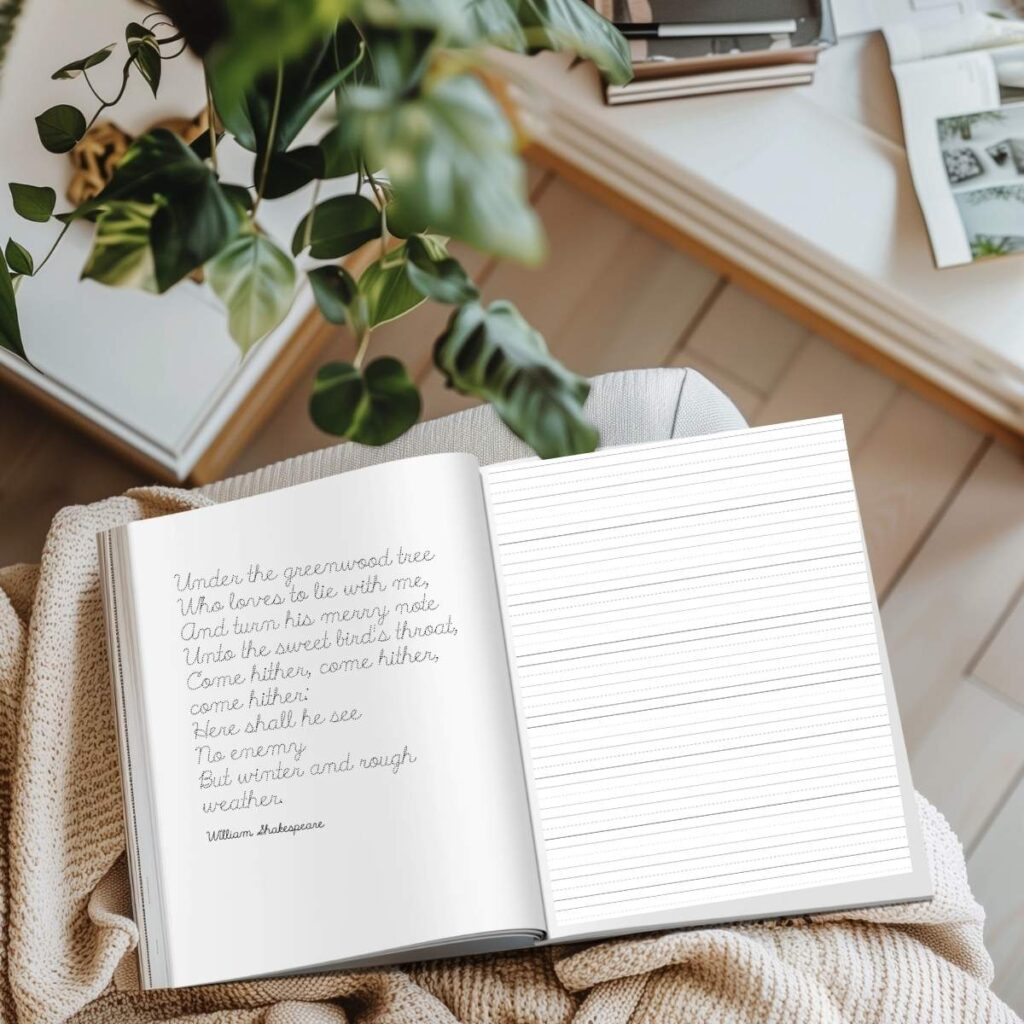 Under the greenwood tree
Who loves to lie with me,
And turn his merry note
Unto the sweet bird's throat,
Come hither, come hither,
come hither:
Here shall he see
No enemy
But winter and rough
weather.
William Shakespeare